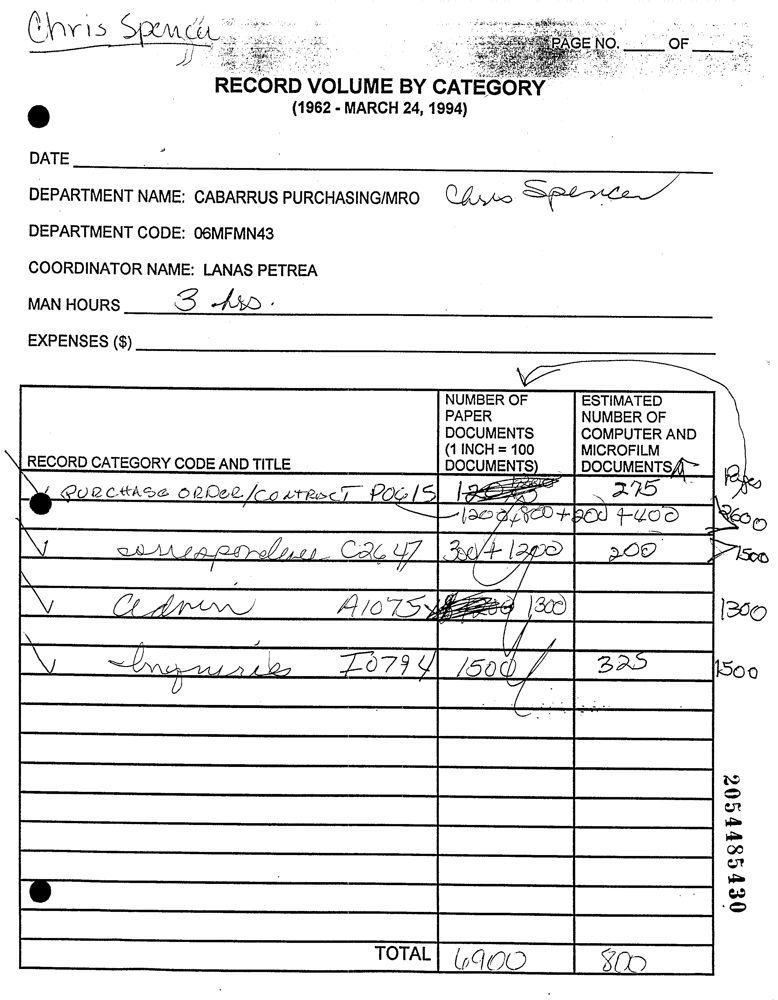 Chris Spencer
PAGE NO. ____ OF ____
RECORD VOLUME BY CATEGORY
(1962 - MARCH 24, 1994)
DATE
DEPARTMENT NAME: CABARRUS PURCHASING/MRO Chris Spencer
DEPARTMENT CODE: 06MFMN43
COORDINATOR NAME: LANAS PETREA
MAN HOURS 3 hrs.
EXPENSES ($)
RECORD CATEGORY CODE AND TITLE
NUMBER OF
PAPER
DOCUMENTS
(1 INCH = 100
DOCUMENTS)
ESTIMATED
NUMBER OF
COMPUTER AND
MICROFILM
DOCUMENTS
Pages
PURCHASE ORDER/CONTRACT P0615 275
1200+800+200+400 2600
correspondence C2647 300+1200 200 1500
Admin A1075 1300 1300
Inquiries I0794 1500 325 1500
TOTAL 6900 800
2054485430